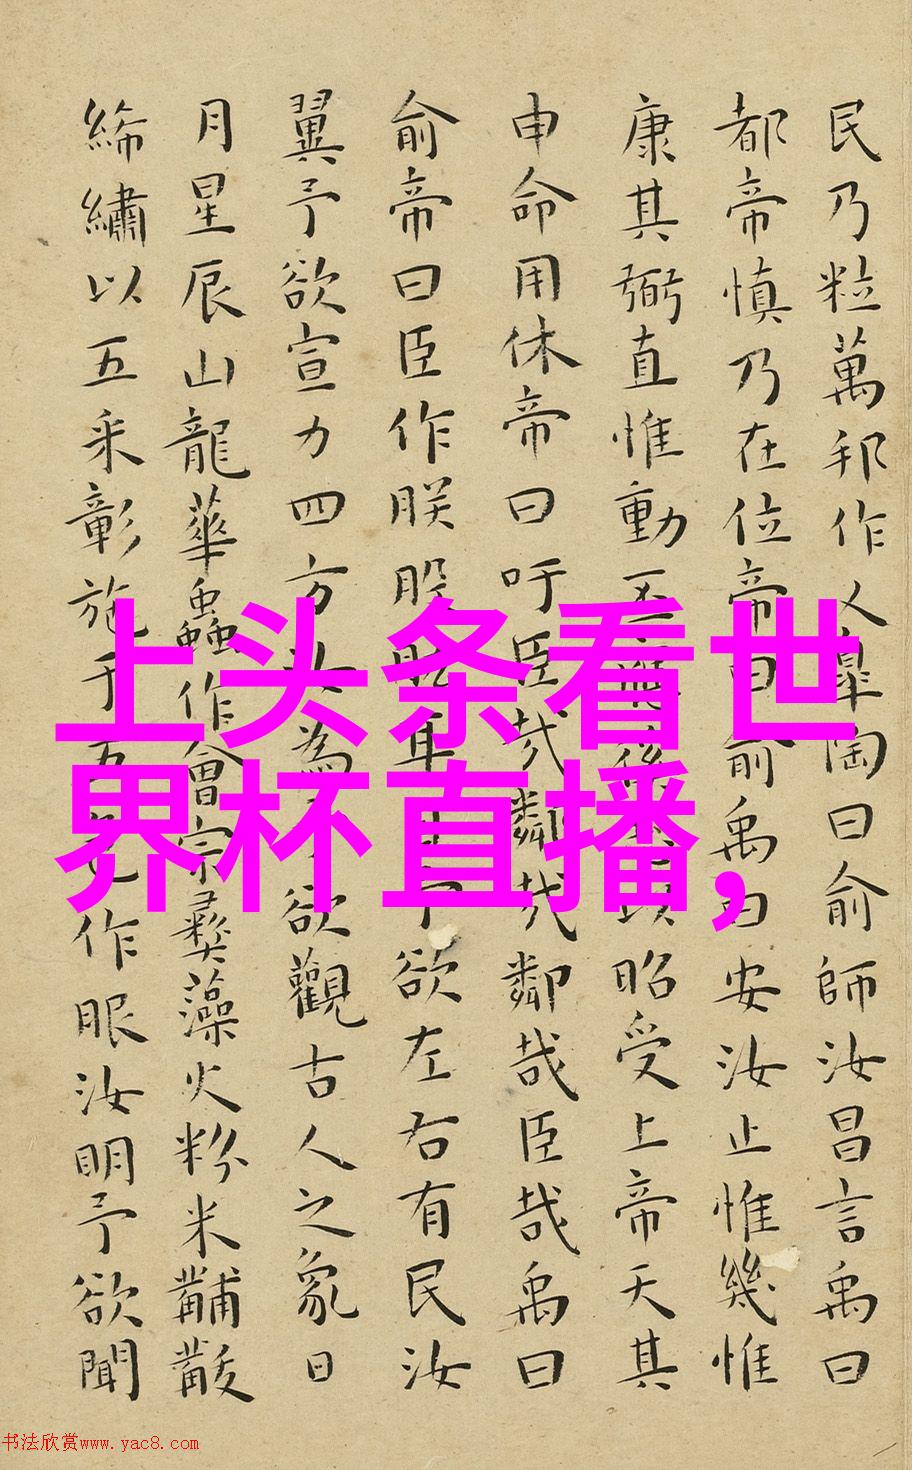 民乃粒萬邦作乂皐陶曰俞師汝昌言禹曰
都帝慎乃在位帝曰俞禹曰安汝止惟幾惟
康其弼直惟動丕應徯以昭受上帝天其
申命用休帝曰吁臣哉鄰哉鄰哉臣哉禹曰
俞帝曰臣作朕股肱耳予欲左右有民汝
翼予欲宣力四方汝為欲觀古人之象日
月星辰山龍華蟲作會宗彝藻火粉米黼黻
絺繡以五采彰施于五色作服汝明予欲聞
上头条看世
界杯直播,
书法欣赏www.yac8.com